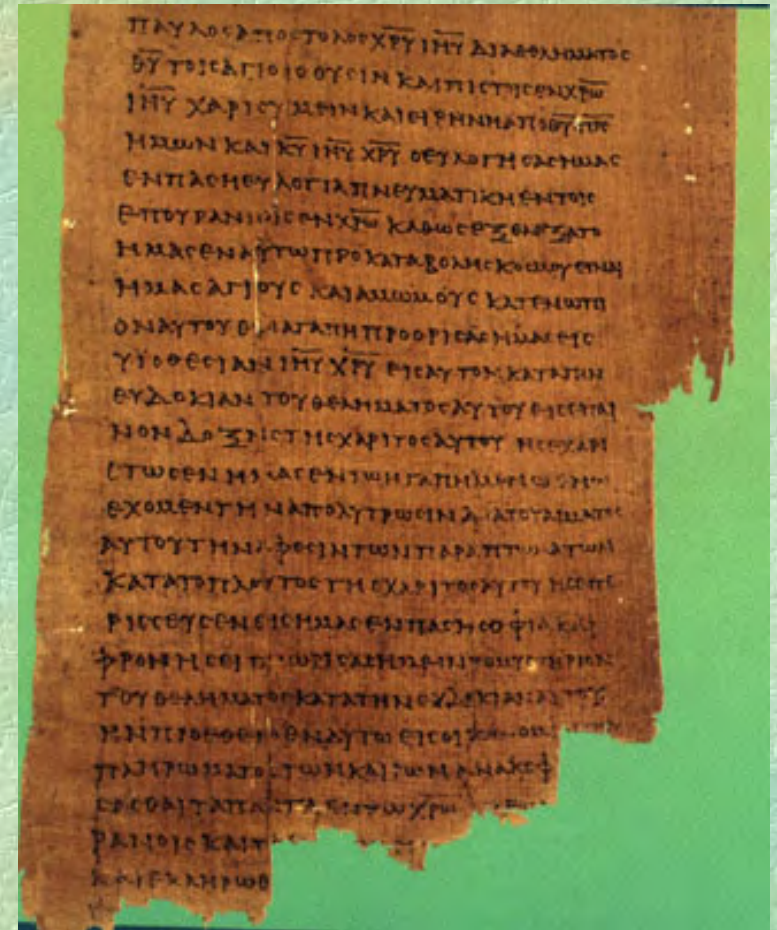 ΠΑΥΛΟϹΑΠΟϹΤΟΛΟϹΧ̅Ρ̅Υ̅Ι̅Η̅Υ̅ΔΙΑΘΕΛΗΜΑΤΟϹ
Θ̅Υ̅ΤΟΙϹΑΓΙΟΙϹΟΥϹΙΝΚΑΙΠΙϹΤΟΙϹΕΝΧ̅Ρ̅Ω̅
Ι̅Η̅Υ̅ΧΑΡΙϹΥΜΕΙΝΚΑΙΕΙΡΗΝΗΑΠΟΘ̅Υ̅Π̅Ρ̅Ϲ̅
ΗΜΩΝΚΑΙΚ̅Υ̅Ι̅Η̅Υ̅Χ̅Ρ̅Υ̅ΟΕΥΛΟΓΗϹΑϹΗΜΑϹ
ΕΝΠΑϹΗΕΥΛΟΓΙΑΠΝΕΥΜΑΤΙΚΗΕΝΤΟΙϹ
ΕΠΟΥΡΑΝΙΟΙϹΕΝΧ̅Ρ̅Ω̅ΚΑΘΩϹΕΞΕΛΕΞΑΤΟ
ΗΜΑϹΕΝΑΥΤΩΠΡΟΚΑΤΑΒΟΛΗϹΚΟϹΜΟΥΕΙΝΑΙ
ΗΜΑϹΑΓΙΟΥϹΚΑΙΑΜΩΜΟΥϹΚΑΤΕΝΩΠΙ
ΟΝΑΥΤΟΥΕΝΑΓΑΠΗΠΡΟΟΡΙϹΑϹΗΜΑϹΕΙϹ
ΥΙΟΘΕϹΙΑΝΙ̅Η̅Υ̅Χ̅Ρ̅Υ̅ΕΙϹΑΥΤΟΝΚΑΤΑΤΗΝ
ΕΥΔΟΚΙΑΝΤΟΥΘΕΛΗΜΑΤΟϹΑΥΤΟΥΕΙϹΕΠΑΙ
ΝΟΝΔΟΞΗϹΤΗϹΧΑΡΙΤΟϹΑΥΤΟΥΗϹΕΧΑΡΙ
ΕΧΟΜΕΝΤΗΝΑΠΟΛΥΤΡΩϹΙΝΔΙΑΤΟΥΑΙΜΑΤΟϹ
ΑΥΤΟΥΤΗΝΑΦΕϹΙΝΤΩΝΠΑΡΑΠΤΩΜΑΤΩΝ
ΚΑΤΑΤΟΠΛΟΥΤΟϹΤΗϹΧΑΡΙΤΟϹΑΥΤΟΥΗϹΕΠΕ
ΡΙϹϹΕΥϹΕΝΕΙϹΗΜΑϹΕΝΠΑϹΗϹΟΦΙΑΚΑΙ
ΦΡΟΝΗϹΕΙ ΤΟΜΥϹΤΗΡΙΟΝ
ΤΟΥΘΕΛΗΜΑΤΟϹΚΑΤΑΤΗΝ
ΗΝΠΡΟΕΘΕΤΟΕΝΑΥΤΩΕΙϹ
ΠΛΗΡΩΜΑΤΟϹΤΩΝΚΑΙΡΩΝΑΝΑΚΕΦ
ΧΡΩ
ΡΑΝΟΙϹΚΑΙΤ
ΚΑΙΕΚΛΗΡΩΘ